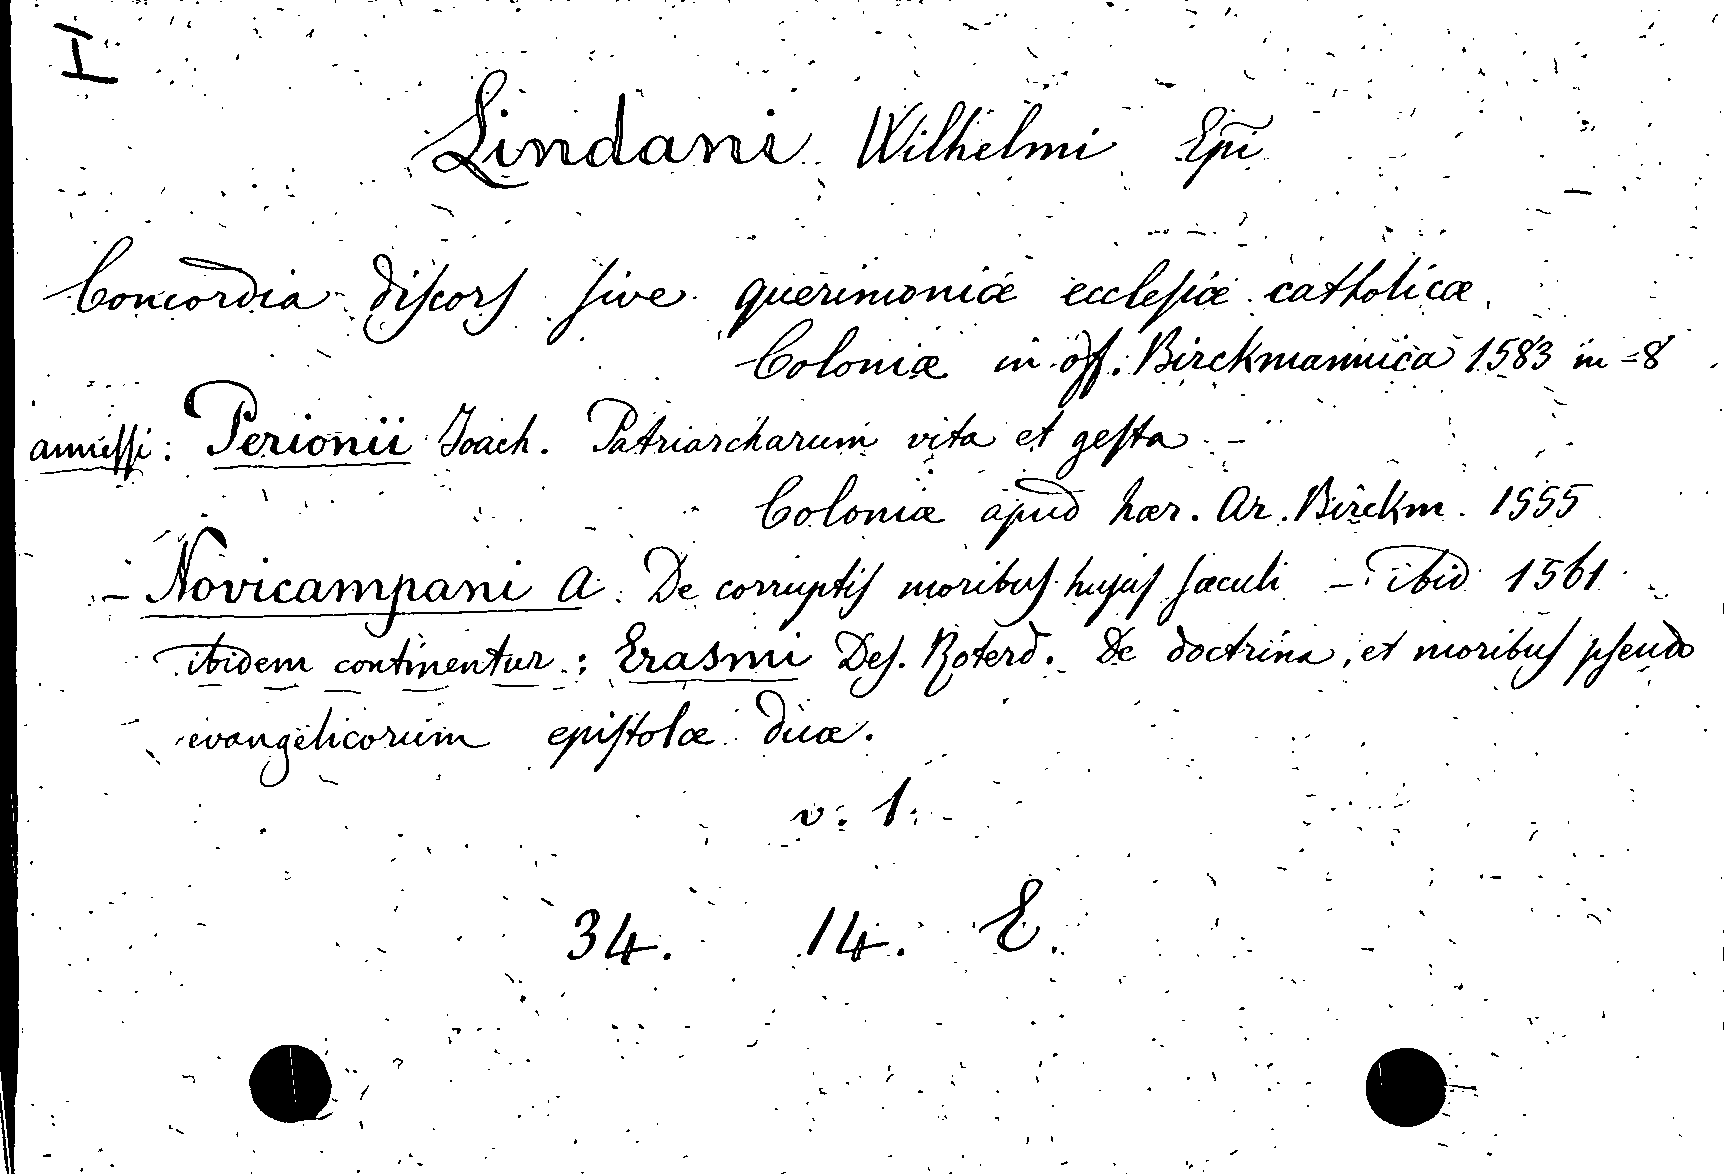 I
Lindani Wilhelmi Epi
Concordia discors sive querimoniæ ecclesiæ catholicæ
Coloniæ in off. Birckmannica 1583 in=8
annessi: Perionii Joach. Patriarcharum vita et gesta -
Coloniæ apud hær. Ar. Birckm. 1555
- Novicampani A. De corruptis moribus hujus sæculi - ibid 1561
ibidem continentur: Erasmi Des. Roterd. De doctrina, et moribus pseudo
evangelicorum epistolæ duæ.
v: 1.
34. 14. E.